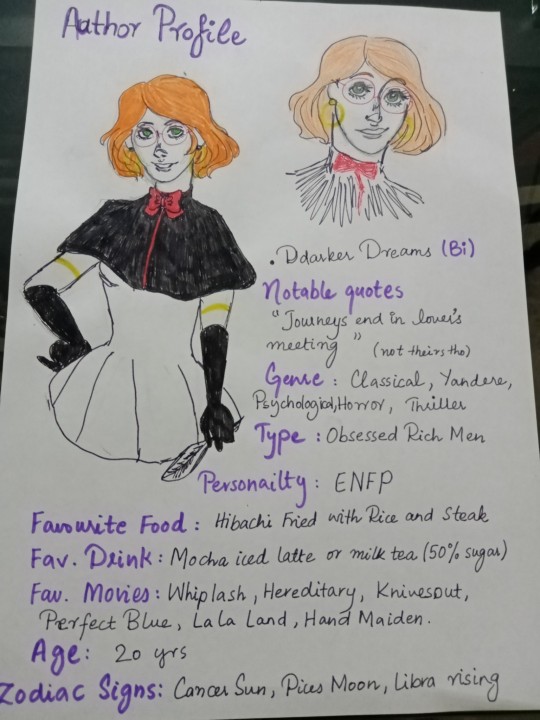 Author Profile
. Ddarker Dreams (Bi)
Notable quotes
"Journeys end in lover's
meeting" (not theirs tho)
Genre : Classical, Yandere,
Psychological, Horror, Thriller
Type : Obsessed Rich Men
Personailty : ENFP
Favourite Food : Hibachi Fried with Rice and Steak
Fav. Drink : Mocha iced latte or milk tea (50% sugar)
Fav. Movies : Whiplash, Hereditary, Knivesout,
Perfect Blue, La La Land, Hand Maiden.
Age : 20 yrs
Zodiac Signs: Cancer Sun, Pices Moon, Libra rising